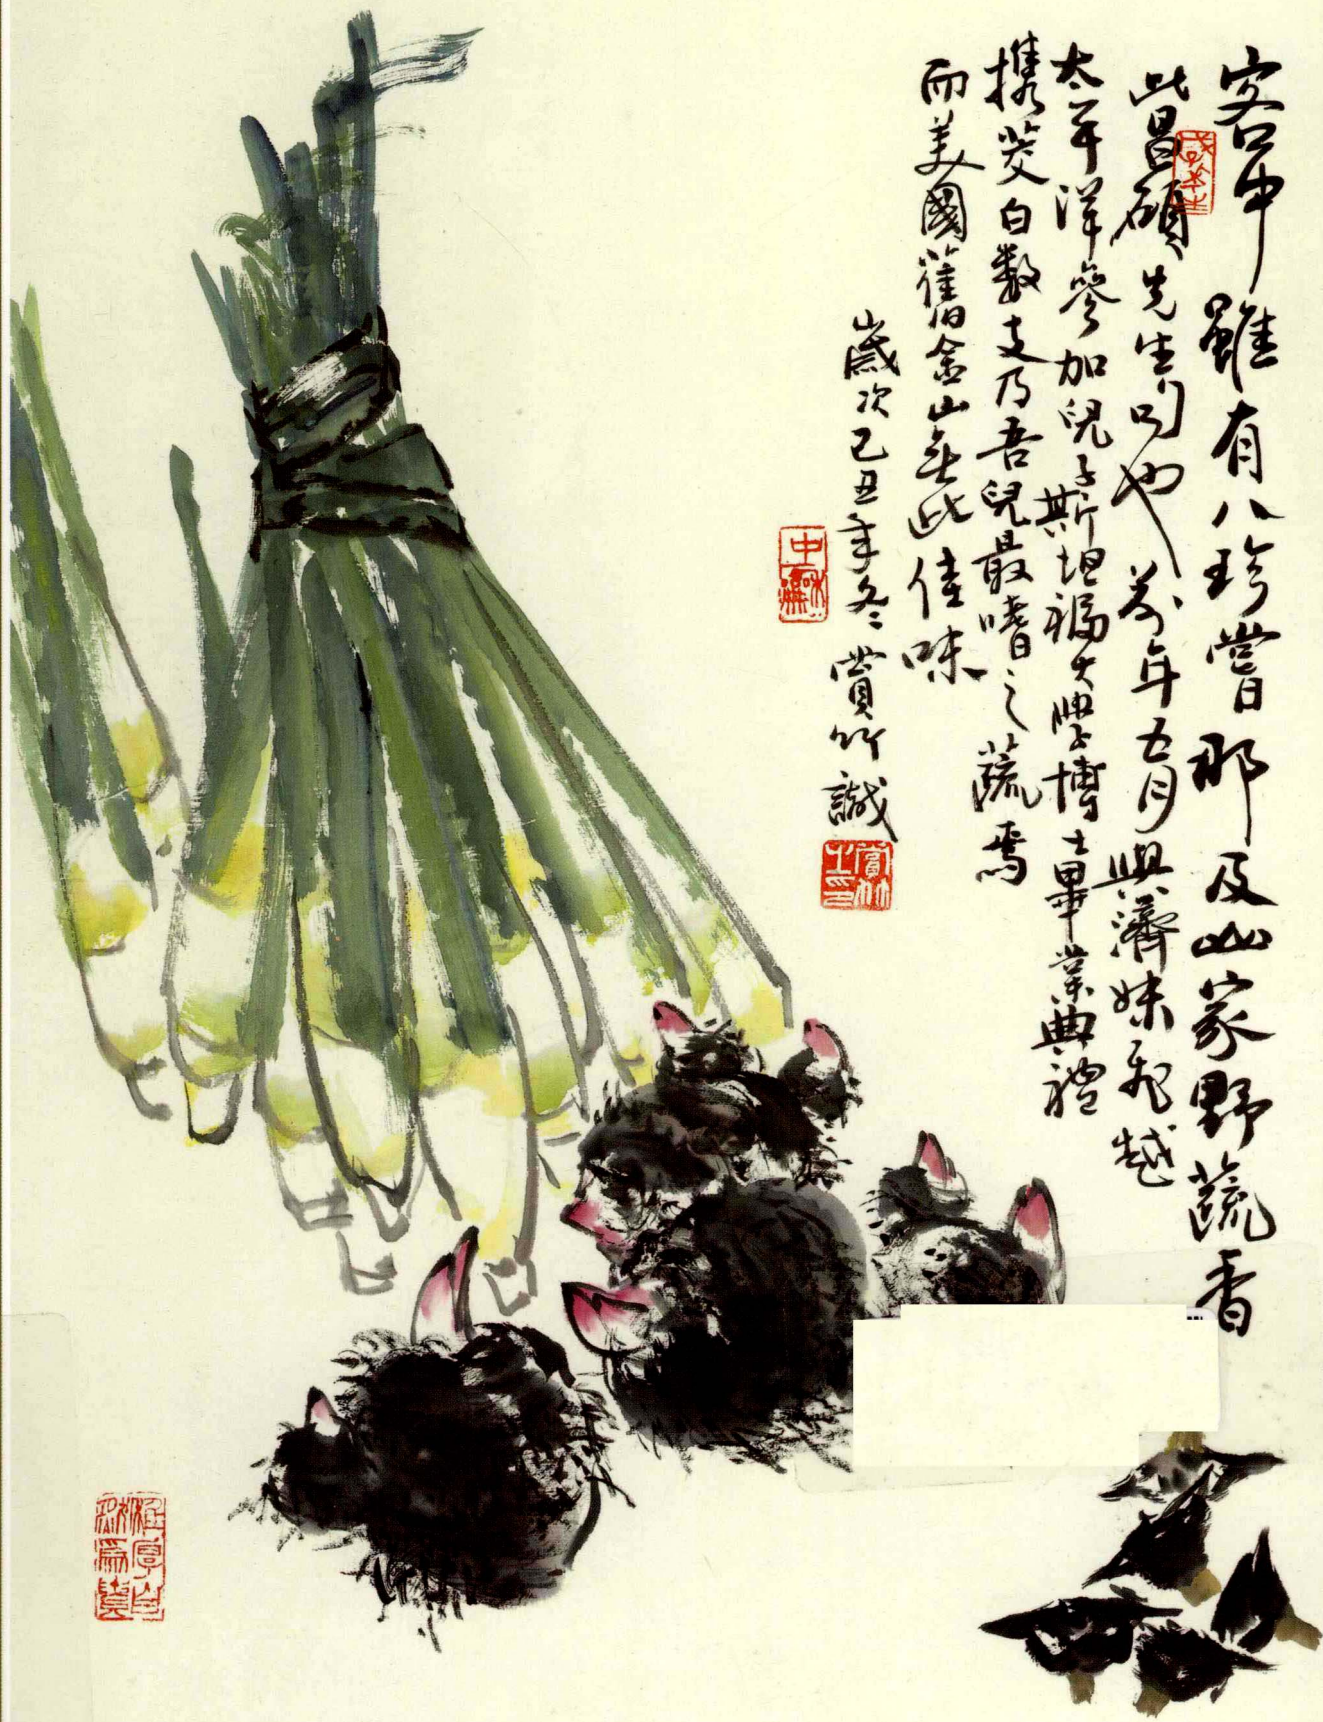 客中雖有八珍嘗那及山家野蔬香
此昌碩先生句也前年五月與濟妹飛越
太平洋參加兒子斯坦福大學博士畢業典禮
攜茭白数支乃吾兒最嗜之蔬焉
而美國舊金山無此佳味
歲次己丑年冬賞竹誠